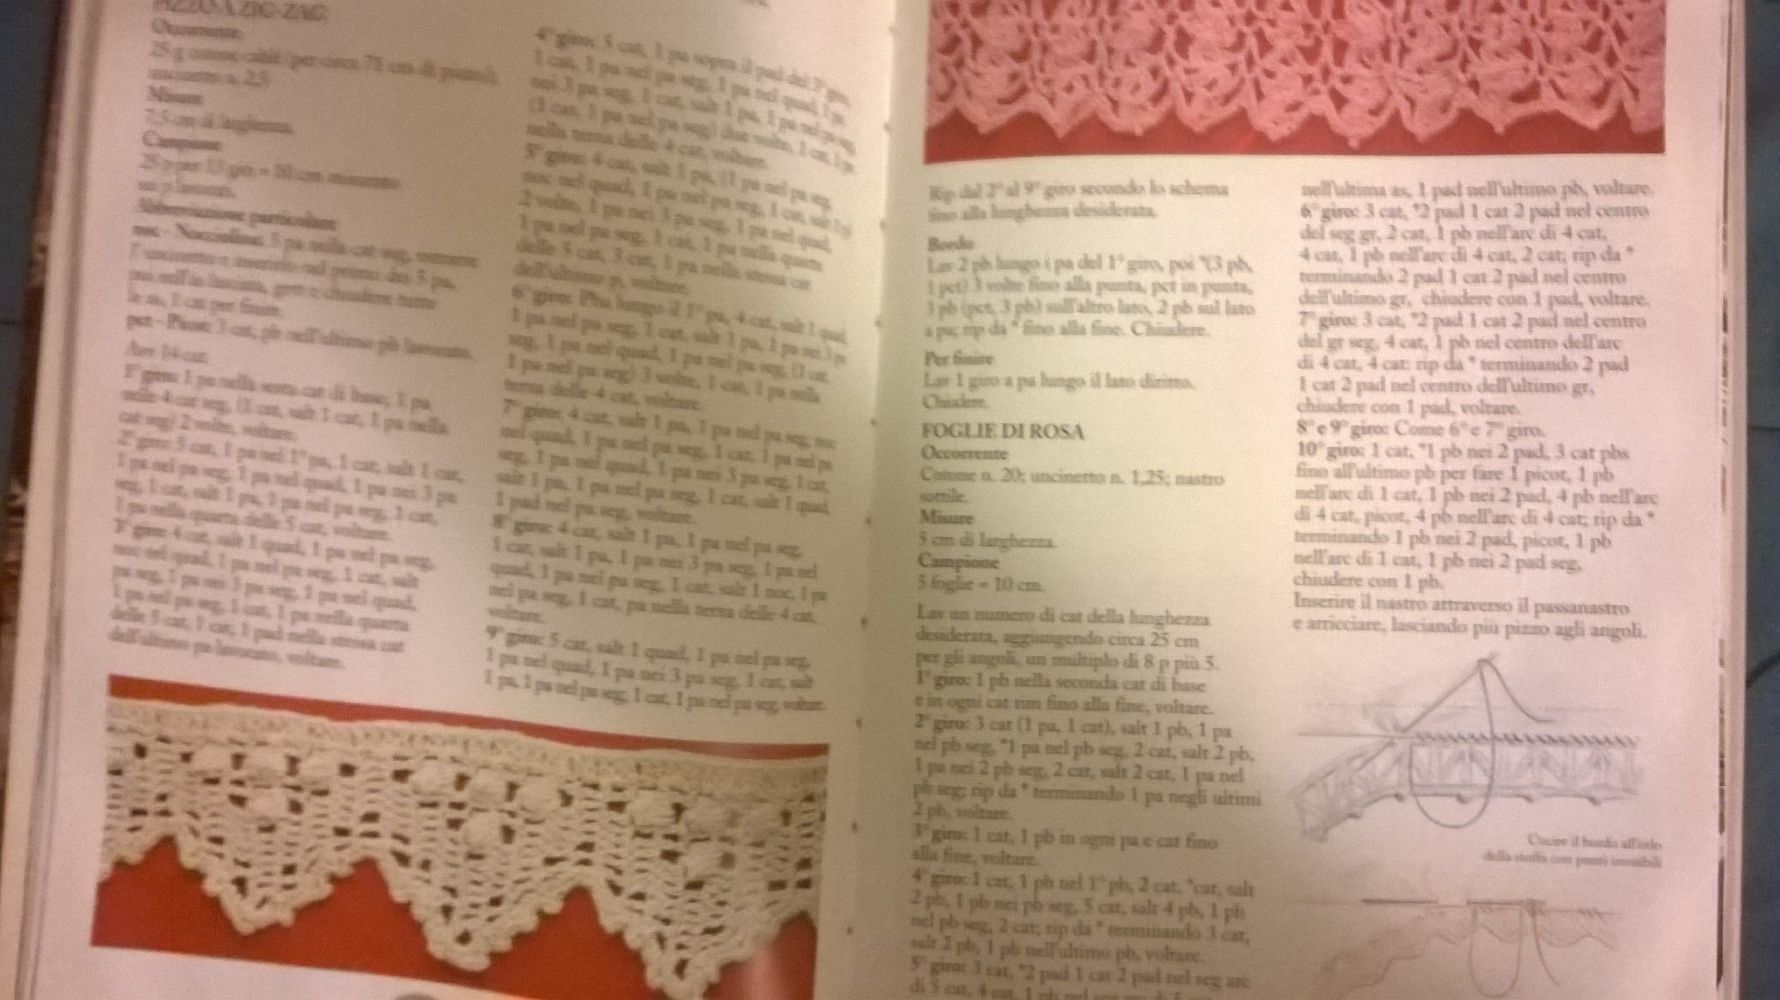 PIZZO A ZIG-ZAG
Occorrente
25 g cotone cablé (per circa 71 cm di pizzo);
uncinetto n. 2,5
Misure
7,5 cm di larghezza.
Campione
25 p per 13 giri = 10 cm misurato
su p lavorati.
Abbreviazione particolare
noc - Nocciolina: 5 pa nella cat seg, estrarre
l'uncinetto e inserirlo nel primo dei 5 pa,
poi nell'as lasciata, gett e chiudere tutte
le as, 1 cat per finire.
pct - Picot: 3 cat, pb nell'ultimo pb lavorato.
Avv 14 cat.
1° giro: 1 pa nella sesta cat di base, 1 pa
nelle 4 cat seg, (1 cat, salt 1 cat, 1 pa nella
cat seg) 2 volte, voltare.
2° giro: 5 cat, 1 pa nel 1° pa, 1 cat, salt 1 cat,
1 pa nel pa seg, 1 pa nel quad, 1 pa nei 3 pa
seg, 1 cat, salt 1 pa, 1 pa nel pa seg, 1 cat,
1 pa nella quarta delle 5 cat, voltare.
3° giro: 4 cat, salt 1 quad, 1 pa nel pa seg,
noc nel quad, 1 pa nel pa seg, 1 cat, salt
pa seg, 1 pa nei 3 pa seg, 1 pa nel quad,
1 pa nel pa seg, 1 cat, 1 pa nella quarta
delle 5 cat, 1 cat, 1 pad nella stessa cat
dell'ultimo pa lavorato, voltare.
4° giro: 5 cat, 1 pa sopra il pad del 3° giro,
1 cat, 1 pa nel pa seg, 1 pa nel quad, 1 pa
nei 3 pa seg, 1 cat, salt 1 pa, 1 pa nel pa seg,
(1 cat, 1 pa nel pa seg) due volte, 1 cat, 1 pa
nella terza delle 4 cat, voltare.
5° giro: 4 cat, salt 1 pa, (1 pa nel pa seg,
noc nel quad, 1 pa nel pa seg, 1 cat, salt 1 p)
2 volte, 1 pa nei 3 pa seg, 1 pa nel quad,
1 pa nel pa seg, 1 cat, 1 pa nella quarta
delle 5 cat, 3 cat, 1 pa nella stessa cat
dell'ultimo p, voltare.
6° giro: Pbs lungo il 1° pa, 4 cat, salt 1 quad,
1 pa nel pa seg, 1 cat, salt 1 pa, 1 pa nei 3 pa
seg, 1 pa nel quad, 1 pa nel pa seg, (1 cat,
1 pa nel pa seg) 3 volte, 1 cat, 1 pa nella
terza delle 4 cat, voltare.
7° giro: 4 cat, salt 1 pa, 1 pa nel pa seg, noc
nel quad, 1 pa nel pa seg, 1 cat, 1 pa nel pa
seg, 1 pa nel quad, 1 pa nei 3 pa seg, 1 cat,
salt 1 pa, 1 pa nel pa seg, 1 cat, salt 1 quad,
1 pad nel pa seg, voltare.
8° giro: 4 cat, salt 1 pa, 1 pa nel pa seg,
1 cat, salt 1 pa, 1 pa nei 3 pa seg, 1 pa nel
quad, 1 pa nel pa seg, 1 cat, salt 1 noc, 1 pa
nel pa seg, 1 cat, pa nella terza delle 4 cat,
voltare.
9° giro: 5 cat, salt 1 quad, 1 pa nel pa seg,
1 pa nel quad, 1 pa nei 3 pa seg, 1 cat, salt
1 pa, 1 pa nel pa seg, 1 cat, 1 pa nel pa seg, voltare.
Rip dal 2° al 9° giro secondo lo schema
fino alla lunghezza desiderata.
Bordo
Lav 2 pb lungo i pa del 1° giro, poi *(3 pb,
1 pct) 3 volte fino alla punta, pct in punta,
3 pb (pct, 3 pb) sull'altro lato, 2 pb sul lato
a pa; rip da * fino alla fine. Chiudere.
Per finire
Lav 1 giro a pa lungo il lato diritto.
Chiudere.
FOGLIE DI ROSA
Occorrente
Cotone n. 20; uncinetto n. 1,25; nastro
sottile.
Misure
5 cm di larghezza.
Campione
5 foglie = 10 cm.
Lav un numero di cat della lunghezza
desiderata, aggiungendo circa 25 cm
per gli angoli, un multiplo di 8 p più 5.
1° giro: 1 pb nella seconda cat di base
e in ogni cat rim fino alla fine, voltare.
2° giro: 3 cat (1 pa, 1 cat), salt 1 pb, 1 pa
nel pb seg, *1 pa nel pb seg, 2 cat, salt 2 pb,
1 pa nei 2 pb seg, 2 cat, salt 2 cat, 1 pa nel
pb seg; rip da * terminando 1 pa negli ultimi
2 pb, voltare.
3° giro: 1 cat, 1 pb in ogni pa e cat fino
alla fine, voltare.
4° giro: 1 cat, 1 pb nel 1° pb, 2 cat, *cat, salt
2 pb, 1 pb nei pb seg, 5 cat, salt 4 pb, 1 pb
nel pb seg, 2 cat; rip da * terminando 3 cat,
salt 2 pb, 1 pb nell'ultimo pb, voltare.
5° giro: 3 cat, *2 pad 1 cat 2 pad nel seg arc
di 5 cat, 4 cat, 1 pb nel
nell'ultima as, 1 pad nell'ultimo pb, voltare.
6° giro: 3 cat, *2 pad 1 cat 2 pad nel centro
del seg gr, 2 cat, 1 pb nell'arc di 4 cat,
4 cat, 1 pb nell'arc di 4 cat, 2 cat; rip da *
terminando 2 pad 1 cat 2 pad nel centro
dell'ultimo gr, chiudere con 1 pad, voltare.
7° giro: 3 cat, *2 pad 1 cat 2 pad nel centro
del gr seg, 4 cat, 1 pb nel centro dell'arc
di 4 cat, 4 cat: rip da * terminando 2 pad
1 cat 2 pad nel centro dell'ultimo gr,
chiudere con 1 pad, voltare.
8° e 9° giro: Come 6° e 7° giro.
10° giro: 1 cat, *1 pb nei 2 pad, 3 cat pbs
fino all'ultimo pb per fare 1 picot, 1 pb
nell'arc di 1 cat, 1 pb nei 2 pad, 4 pb nell'arc
di 4 cat, picot, 4 pb nell'arc di 4 cat; rip da *
terminando 1 pb nei 2 pad, picot, 1 pb
nell'arc di 1 cat, 1 pb nei 2 pad seg,
chiudere con 1 pb.
Inserire il nastro attraverso il passanastro
e arricciare, lasciando più pizzo agli angoli.
Cucire il bordo all'orlo
della stoffa con punti invisibili